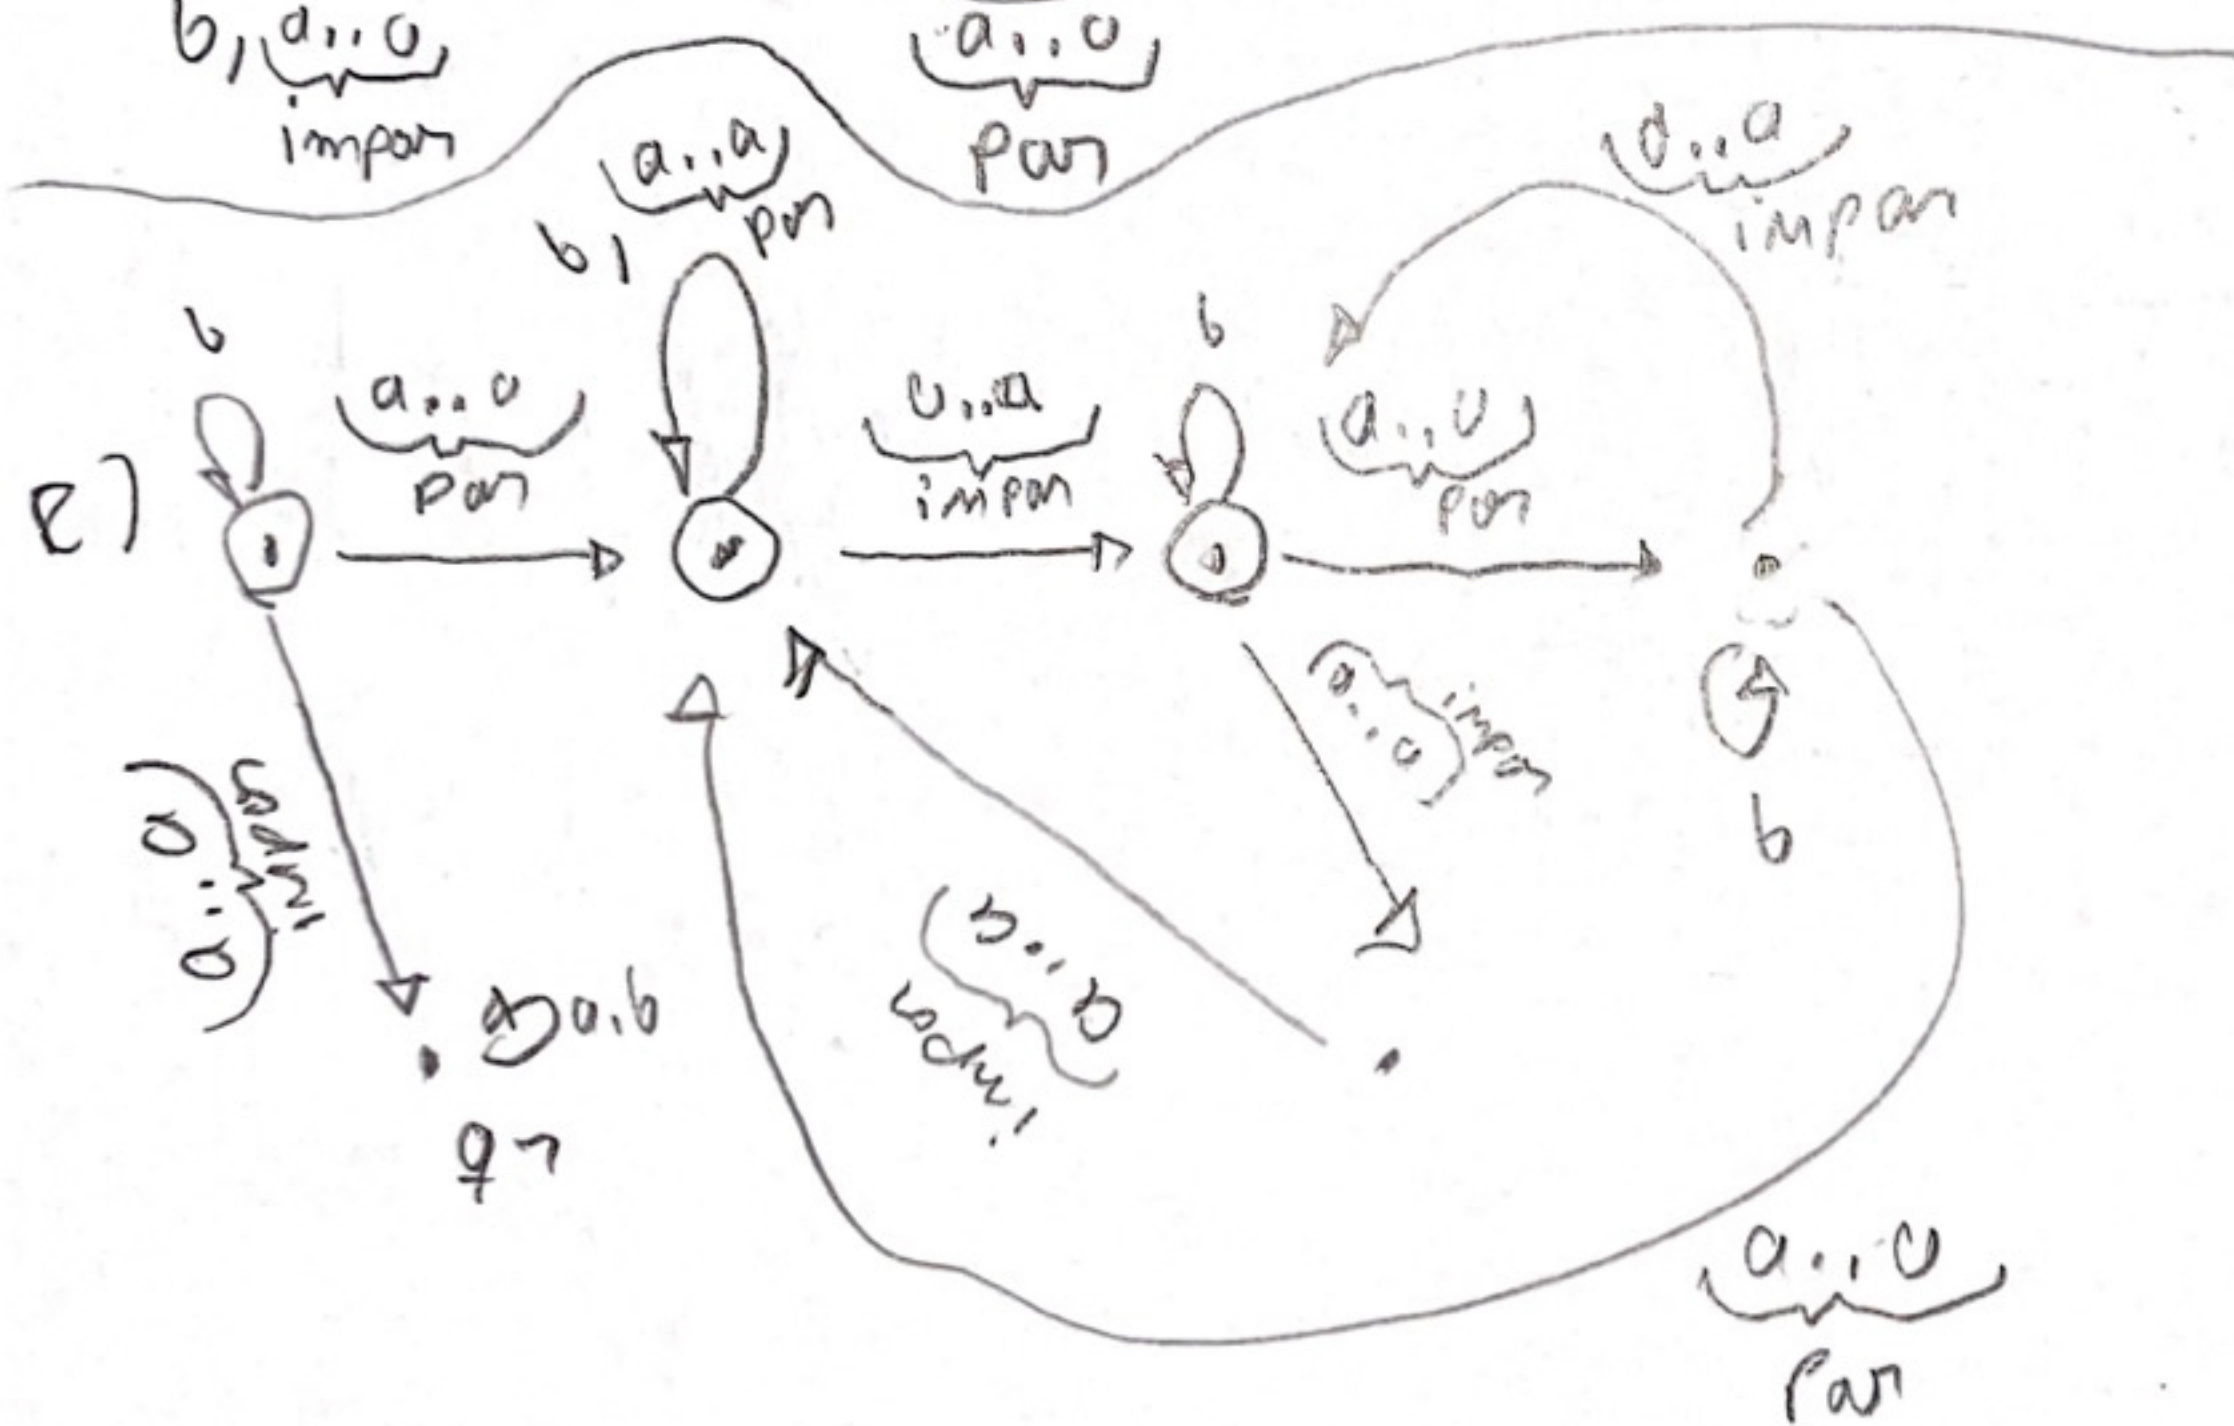 b, a..a
impar
a..a
par
a..a
par
b,
a..a
impar
b
b
a..a
par
a..a
impar
a..a
par
e)
a..a
impar
a..a
impar
b
a..a
impar
a,b
a..a
par